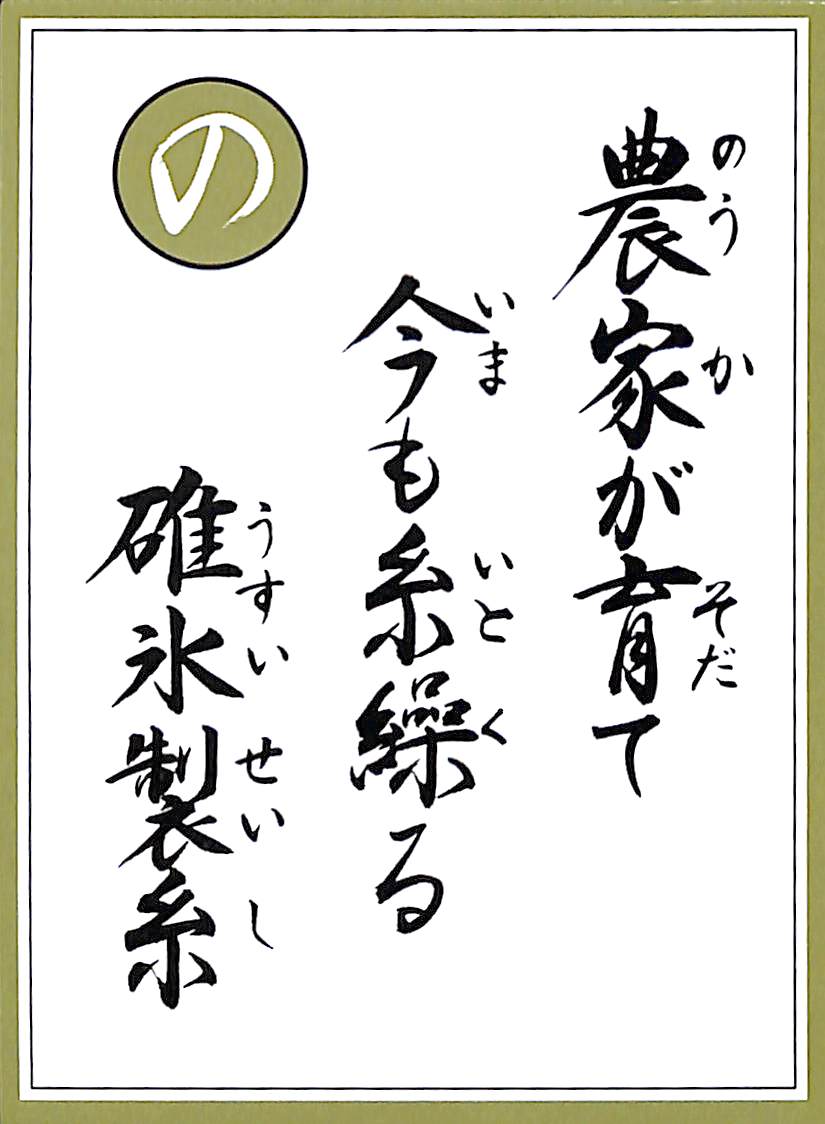 の
農家が育て
のうか そだ
今も糸繰る
いま いと く
碓氷製糸
うすい せいし